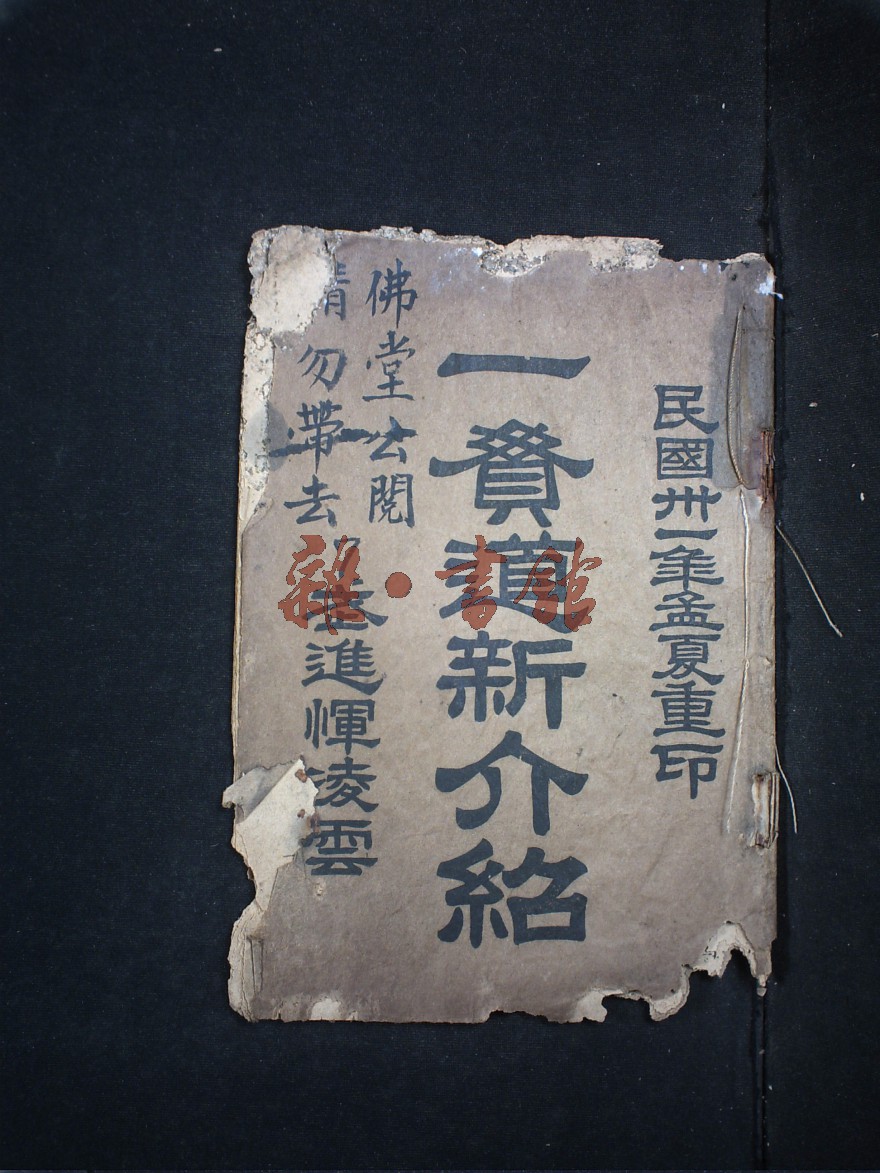 民國卅一年孟夏重印
一貫道新介紹
佛堂公閱
請勿帶去
進惲凌雲
雜·書館